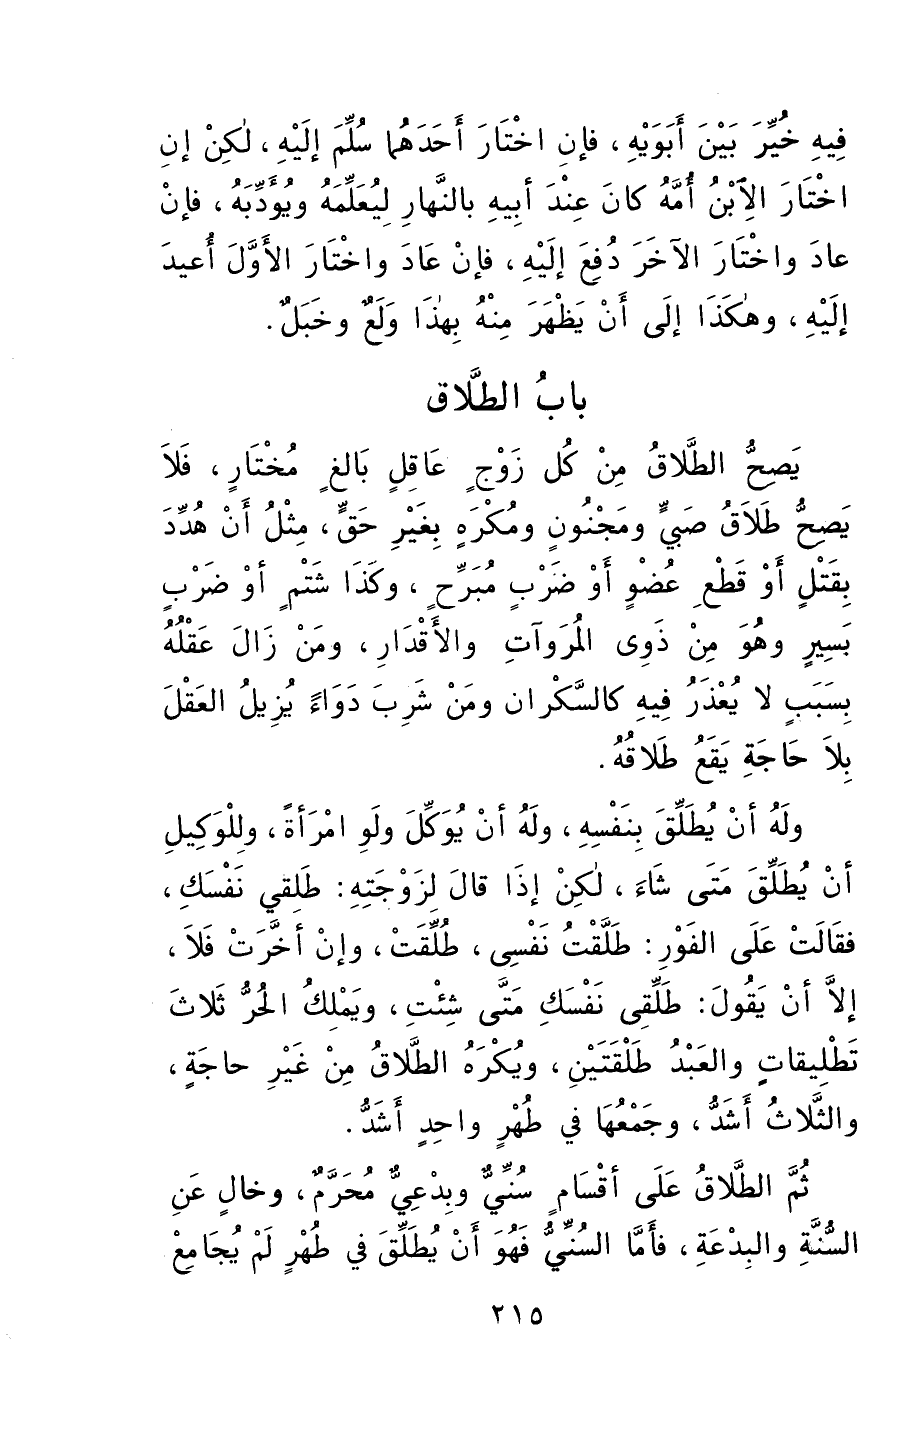 فِيهِ خُيِّرَ بَيْنَ أَبَوَيْهِ ، فإنِ اخْتَارَ أَحَدَهُما سُلِّمَ إلَيْهِ ، لٰكِنْ إنِ
اخْتَارَ الِٱبْنُ أُمَّهُ كانَ عِنْدَ أبِيهِ بالنَّهارِ لِيُعَلِّمَهُ ويُؤَدِّبَهُ ، فإنْ
عادَ واخْتَارَ الآخَرَ دُفِعَ إلَيْهِ ، فإنْ عَادَ واخْتَارَ الأَوَّلَ أُعيدَ
إلَيْهِ ، وهٰكَذَا إلَى أَنْ يَظْهَرَ مِنْهُ بِهٰذَا وَلَعٌ وخَبَلٌ .
بابُ الطَّلَاق
يَصِحُّ الطَّلَاقُ مِنْ كُل زَوْجٍ عَاقِلٍ بَالغٍ مُخْتَارٍ ، فَلاَ
يَصِحُّ طَلَاَقُ صَبيٍّ ومَجْنُونٍ ومُكْرَهٍ بِغَيْرِ حَقٍّ ، مِثْلُ أَنْ هُدِّدَ
بِقَتْلٍ أَوْ قَطْعِ عُضْوٍ أَوْ ضَرْبٍ مُبَرِّحٍ ، وكَذَا شَتْمٍ أوْ ضَرْبٍ
يَسِيرٍ وهُوَ مِنْ ذَوِى المُرَوآتِ والأَقْدَارِ ، ومَنْ زَالَ عَقْلُهُ
بِسَبَبٍ لا يُعْذَرُ فِيهِ كالسَّكْران ومَنْ شَرِبَ دَوَاءً يُزِيلُ العَقْلَ
بِلاَ حَاجَةِ يَقَعُ طَلَاقُهُ .
ولَهُ أنْ يُطَلِّقَ بِنَفْسِهِ ، ولَهُ أنْ يُوَكِّلَ ولَوِ امْرَأةً ، ولِلْوَكِيلِ
أنْ يُطَلِّقَ مَتَى شَاءَ ، لٰكِنْ إذَا قالَ لِزَوْجَتِهِ : طَلِقي نَفْسَكِ ،
فقَالَتْ عَلَى الفَوْرِ : طَلَّقْتُ نَفْسِى ، طُلِّقَتْ ، وإنْ أخَّرَتْ فَلاَ ،
إلاَّ أنْ يَقُولَ : طَلِّقِى نَفْسَكِ مَتَّى شِئْتِ ، ويَمْلِكُ الحُرُّ ثَلاثَ
تَطْلِيقاتٍ والعَبْدُ طَلْقَتَيْنِ ، ويُكْرَهُ الطَّلَاقُ مِنْ غَيْرِ حاجَةٍ ،
والثَّلاثُ أَشَدُّ ، وجَمْعُهَا في طُهْرٍ واحِدٍ أَشَدُّ .
ثُمَّ الطَّلَاقُ عَلَى أقْسَامٍ سُنِّيٌّ وبِدْعِيٌّ مُحَرَّمٌ ، وخالٍ عَنِ
السُّنَّةِ والبِدْعَةِ ، فأَمَّا السُنِّيُّ فَهُوَ أَنْ يُطَلِّقَ في طُهْرٍ لَمْ يُجَامِعْ
٢١٥